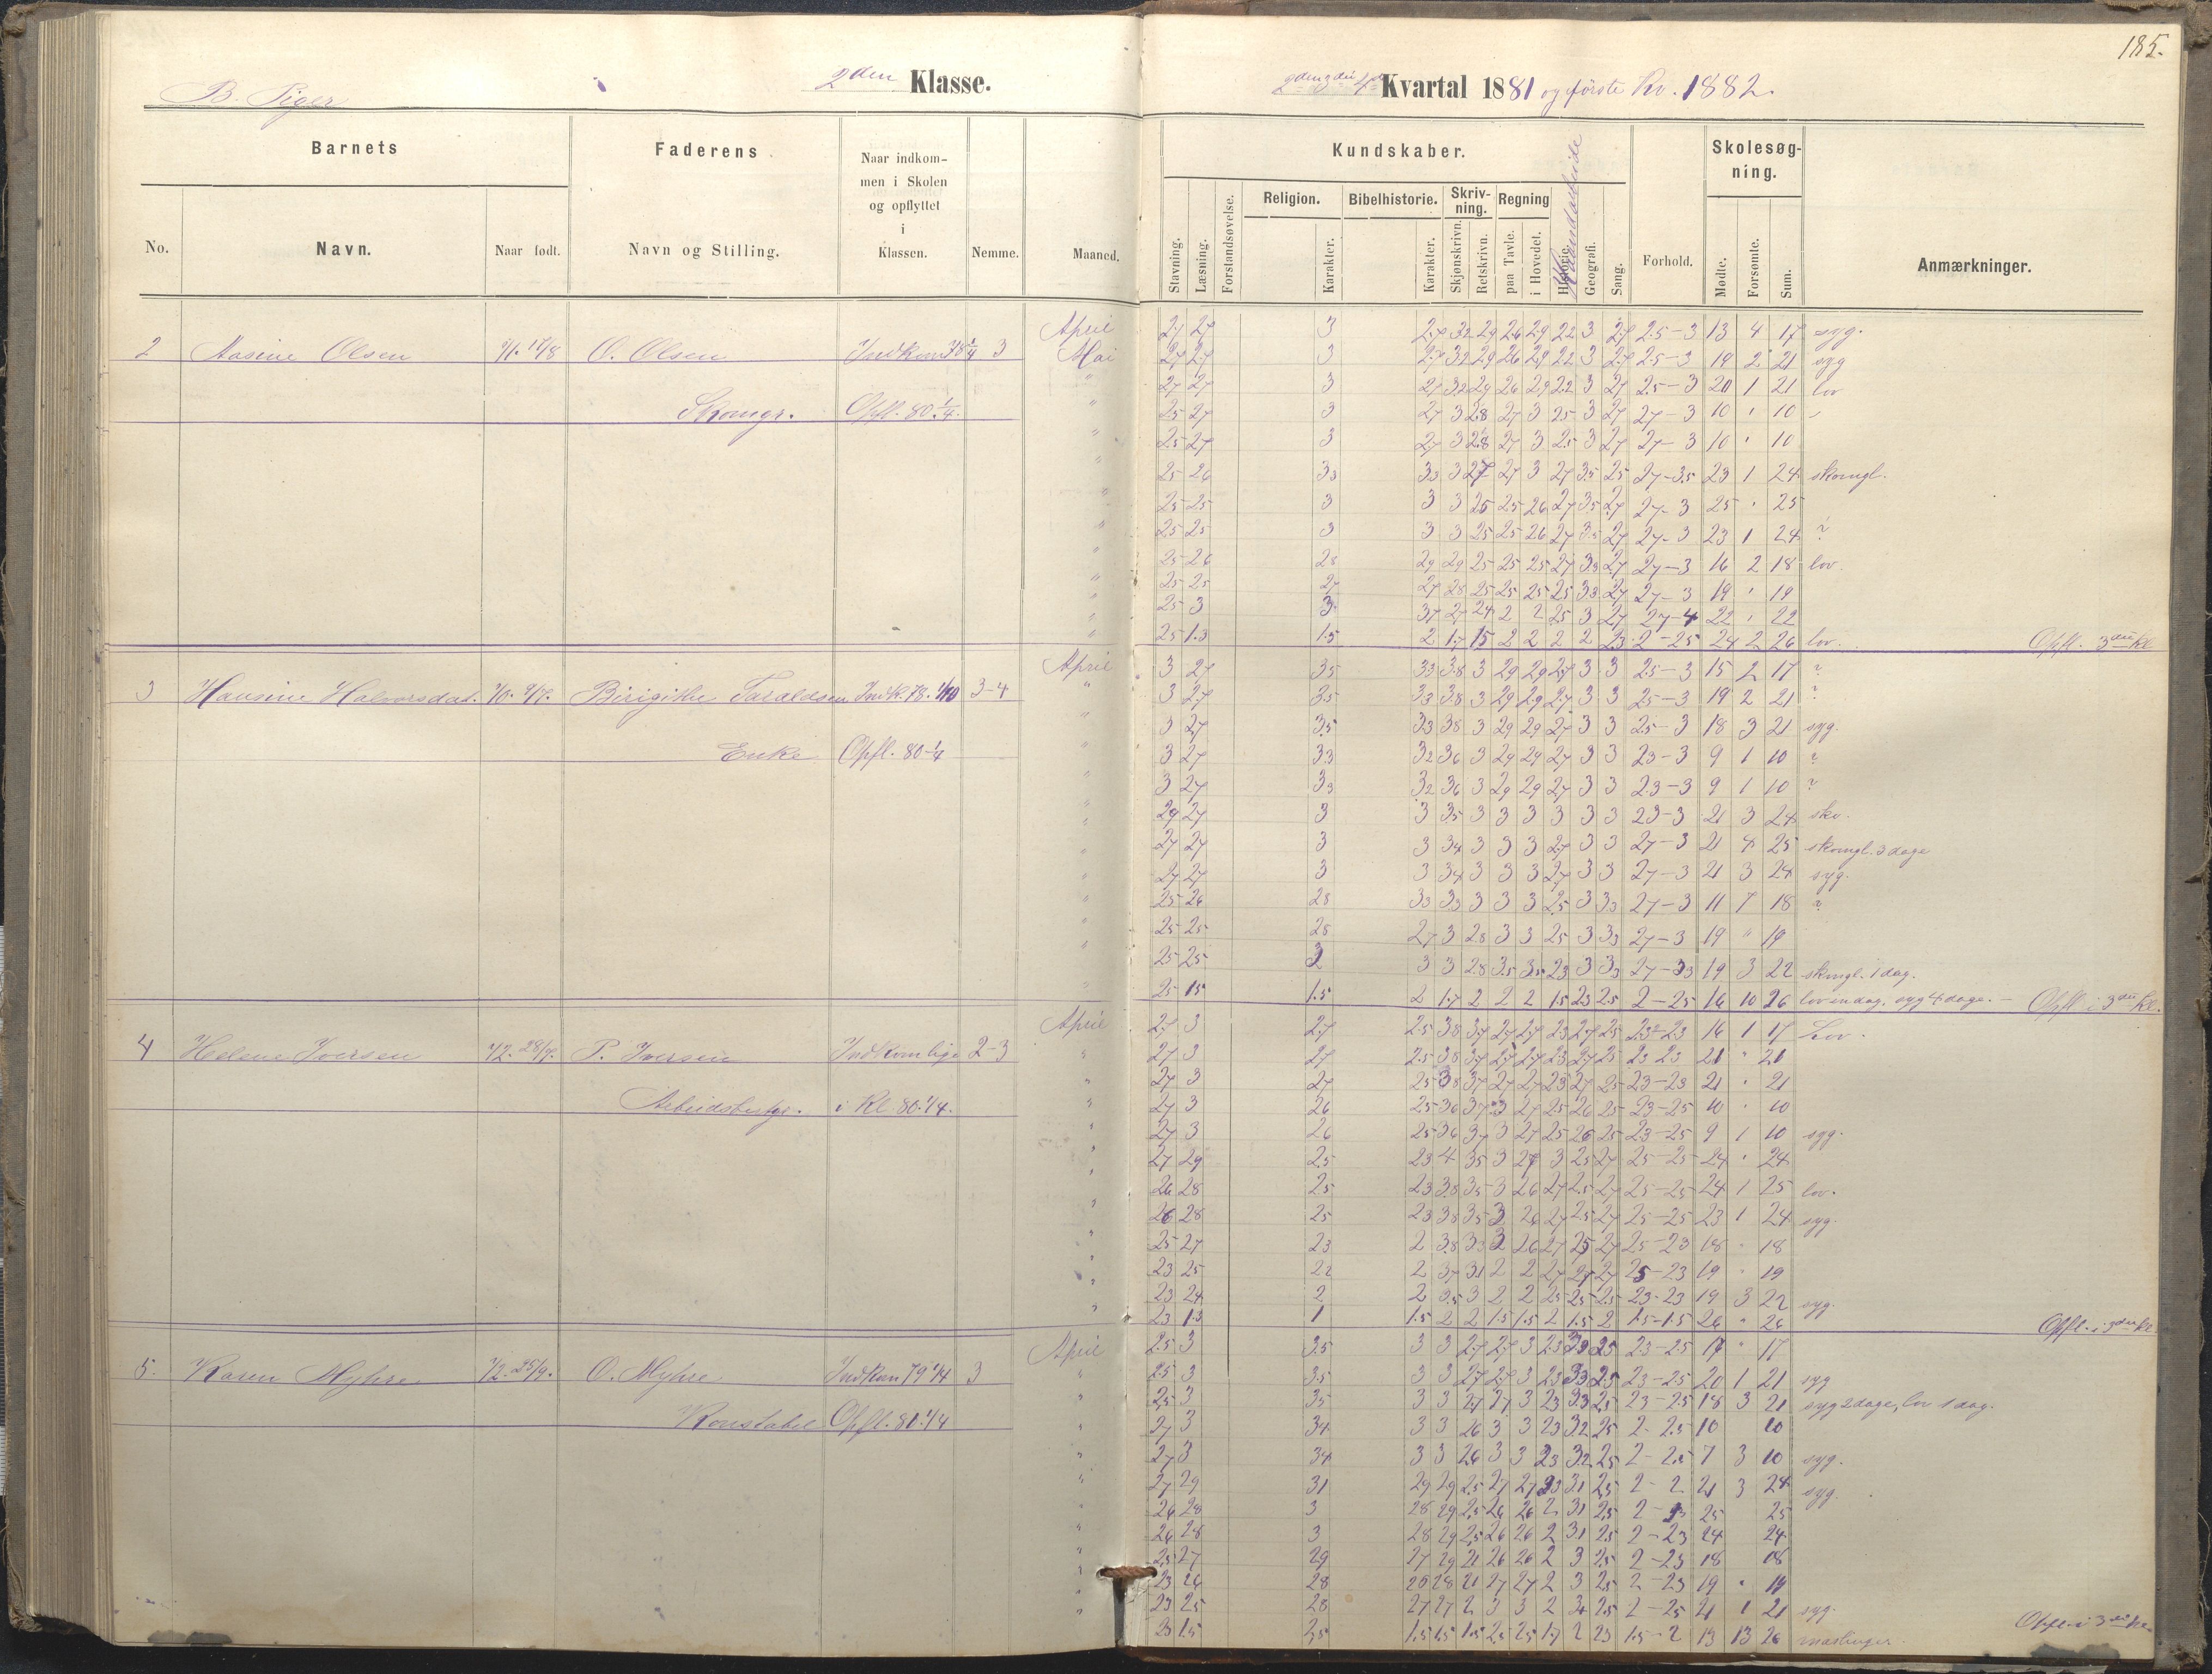 185.
B. Piger
2den Klasse.
2den 3die 4de Kvartal 1881 og første Kv. 1882.
Barnets
Faderens
Naar indkommen i Skolen og opflyttet i Klassen.
Kundskaber.
Skolesøgning.
Religion. Bibelhistorie. Skrivning. Regning
Haandarbeide
No. Navn. Naar født. Navn og Stilling. Nemme. Maaned.
Stavning. Læsning. Forstandsøvelse. Karakter. Karakter. Skjønskrivn. Retskrivn. paa Tavle. i Hovedet. Historie. Geografi. Sang. Forhold. Mødte. Forsømte. Sum. Anmærkninger.
April 27 27 3 2.7 32 29 26 29 22 3 2.7 2.5-3 13 4 17 syg.
2 Aasine Olsen O. Olsen 3 Mai 27 27 3 2.7 32 29 26 29 22 3 2.7 2.5-3 19 2 21 syg
27 27 3 27 32 29 26 29 22 3 27 2.5-3 20 1 21 lov
Skomgr. Opfl. 80. 1/4. 25 27 3 27 3 28 27 3 25 3 27 27-3 10 " 10
25 27 3 27 3 28 27 3 25 3 27 27-3 10 " 10
25 26 33 33 3 27 27 3 27 35 25 27-35 23 1 24 skomgl.
25 25 3 3 3 25 25 26 27 35 27 27-3 25 " 25
25 25 3 3 3 25 25 26 27 35 27 27-3 23 1 24 ?
25 26 28 29 29 25 25 25 27 33 27 27-3 16 2 18 lov.
25 25 27 27 28 25 25 25 25 33 27 27-3 19 " 19
25 3 3 37 27 24 2 2 25 3 27 27-4 22 " 22
25 1.3 1.5 2 1.7 15 2 2 2 2 23 2-25 24 2 26 lov. Opfl. 3die kl
April 3 27 35 33 38 3 29 29 27 3 3 25-3 15 2 17 ?
3 Hansine Halvorsdat. Birigithe Taraldsen Indk. 78. 1/10 3-4 " 3 27 35 33 38 3 29 29 27 3 3 25-3 19 2 21 ?
3 27 35 33 38 3 29 29 27 3 3 25-3 18 3 21 syg.
Enke Opfl. 80 1/4 3 27 33 32 36 3 29 29 27 3 3 23-3 9 1 10 ?
3 27 33 32 36 3 29 29 27 3 3 23-3 9 1 10 ?
29 27 3 3 35 3 3 3 3 3 3 23-3 21 3 24 sko.
27 27 3 3 34 3 3 3 27 3 3 27-3 21 4 25 skomgl. 3 dage
27 27 3 3 34 3 3 3 27 3 3 27-3 21 3 24 syg.
25 26 28 33 33 3 3 3 25 3 33 27-3 11 7 18 ?
25 25 28 27 3 28 3 3 25 3 33 27-3 19 " 19
25 25 3 3 3 28 35 35 23 3 33 27-33 19 3 22 skomgl. 1 dag.
25 15 1.5 2 1.7 2 2 2 1.5 23 25 2-25 16 10 26 lov en dag. syg 4 dage. — Opfl. i 3die Kl.
April 27 3 27 25 38 37 27 27 23 27 25 23-23 16 1 17 Lov.
4 Helene Iversen 72. 28/7. P. Iversen Indkom lige 2-3 " 27 3 27 25 38 37 27 27 23 27 25 23 23 21 " 21
27 3 27 25 38 37 27 27 23 27 25 23-23 21 " 21
i Kl. 80. 1/4. 27 3 26 25 36 37 3 27 25 26 25 23-25 10 " 10
27 3 26 25 36 37 3 27 25 26 25 23-25 9 1 10 syg.
27 29 25 23 4 35 3 27 3 25 27 25-25 24 " 24
26 28 25 23 38 35 3 26 27 25 27 25-25 24 1 25 lov.
26 28 25 23 38 35 3 26 27 25 27 25-25 23 1 24 syg.
25 27 23 2 38 33 2 26 27 25 27 25-23 18 " 18
23 25 22 2 37 31 2 2 27 27 27 25-23 19 " 19
23 24 2 2 35 3 2 2 25 25 25 23-23 19 3 22 syg.
23 1.3 1 1.5 2 2 1.5 1.5 2 1.5 2 1.5-1.5 26 " 26 Opfl. i 3die kl.
April 25 3 35 3 3 27 27 3 23 33 25 23-25 17 " 17
5. Karen Myhre 72. 25/9. O. Myhre Indkom 79 1/4 3 " 25 3 35 3 3 27 27 3 23 33 25 23-25 20 1 21 syg
25 3 35 3 3 27 27 3 23 33 25 23-25 18 3 21 syg 2 dage, lov 1 dag.
Konstabel Opfl. 81. 1/4 27 3 34 3 3 26 3 3 23 32 25 2-25 10 10
27 3 34 3 3 26 3 3 23 32 25 2-25 7 3 10 syg.
27 29 31 29 29 25 27 27 23 31 25 2-2 21 3 24 syg.
26 28 3 28 29 25 26 26 2 31 25 25 25
26 28 3 28 29 25 26 26 2 31 25 2-23 24 24
25 27 29 27 29 21 26 26 2 3 25 2-23 18 18
23 26 28 26 28 21 27 27 2 3 25 2-23 19 " 19
23 25 28 27 27 2 3 3 2 34 25 2-25 21 syg.
23 1.5 25 1.5 1.5 1.5 25 25 1.7 2 23 1.5-2 13 13 26 mæslinger. Opfl. i 3die kl.